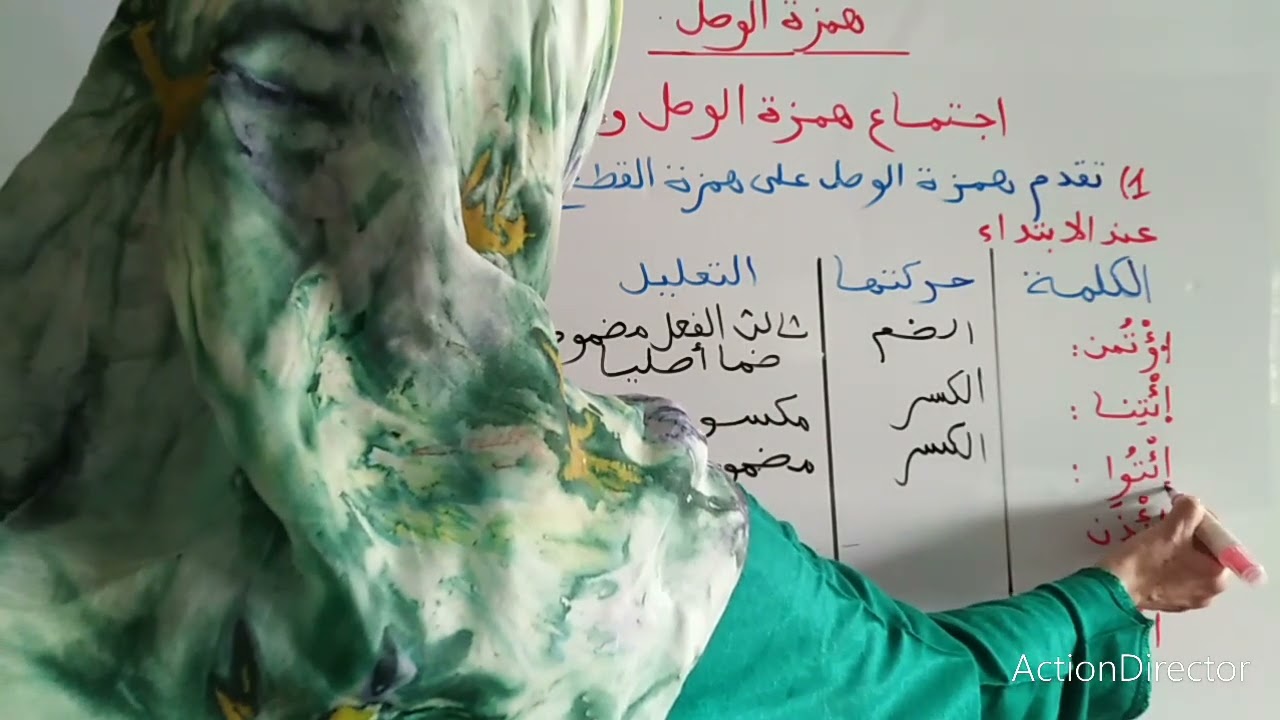 همزة الوصل
اجتماع همزة الوصل و
1) تقدم همزة الوصل على همزة القطع
عند الابتداء
الكلمة حركتها التعليل
اؤْتُمن: الضم ثالث الفعل مضموم
ضما أصليا
اِئْتِنا : الكسر مكسو
اِئْتُوا : الكسر مضمو
ActionDirector